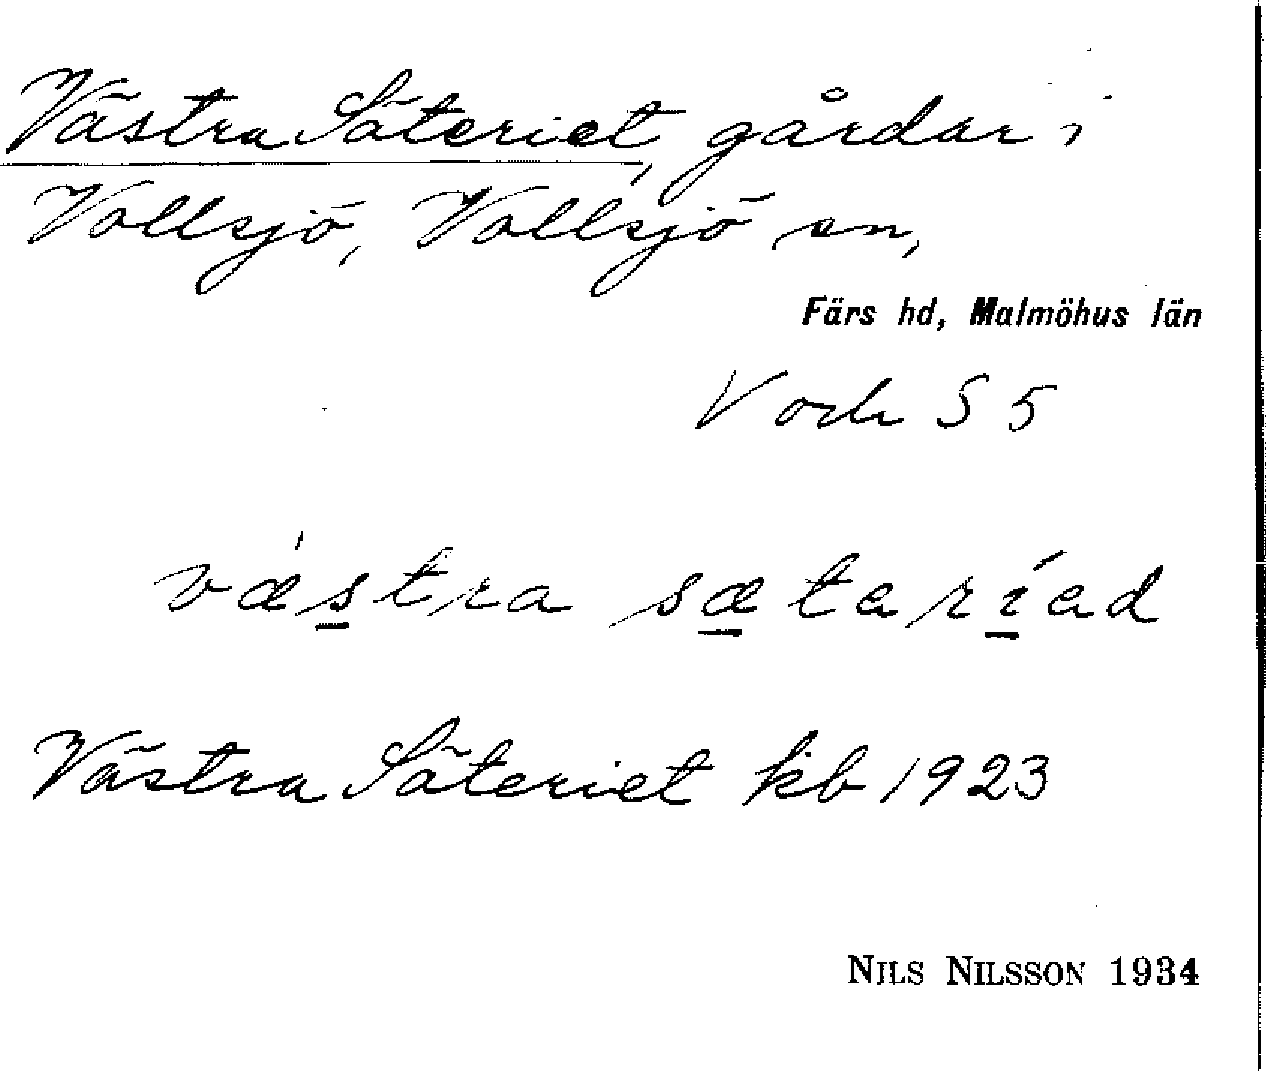 Västra Säteriet, gårdar i
Vollsjö, Vollsjö sn,
Färs hd, Malmöhus län
V och S 5
væ̀s̲tra sæ̲tarí̲ad
Västra Säteriet kb 1923
NILS NILSSON 1934